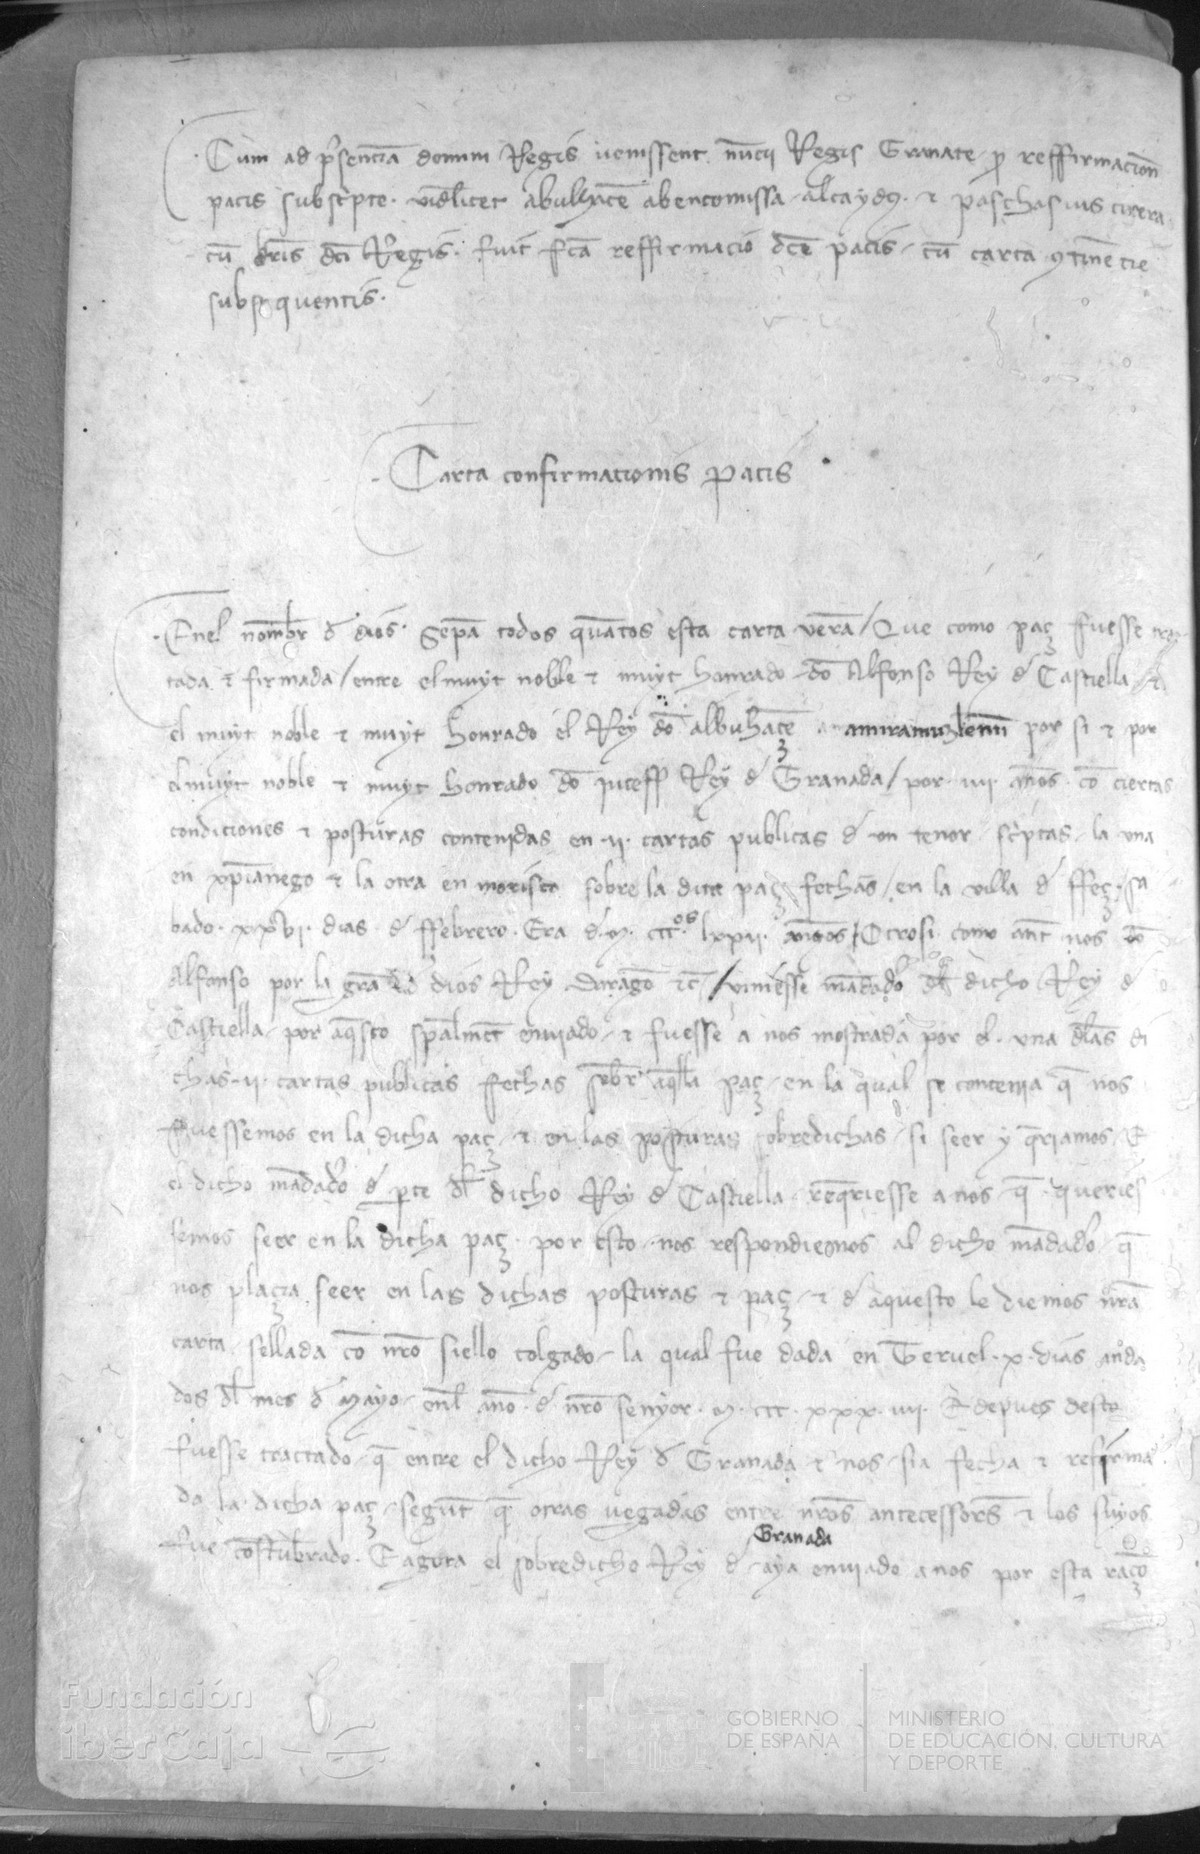 Cum ad p̄senciā domini Regis venissent nūcii Regis Granate pro reffirmacion̄
pacis subscripte. vidl̄icet abulhacē abencomissa alcaydꝰ. ⁊ paschasius cirera
cū lrīs dc̄i Regis. fuit fc̄a reffirmacio dc̄e pacis cū carta ꝯtinēcie
subsequentis.
Carta confirmacionis pacis
En el nombr̄ đ dios. Sepā todos quātos esta carta verā / Que como paç fuesse trac
tada ⁊ firmada / entre el muyt noble ⁊ muyt honrado dō Alfonso Rey đ Castiella ⁊
el muyt noble ⁊ muyt honrado el Rey dō albuhacē amiramuzlemin por si ⁊ por
el muyt noble ⁊ muyt honrado dō juceff Rey đ Granada / por .iiii. anōs. cō ciertas
condiciones ⁊ posturas contenidas en .ii. cartas publicas đ un tenor sc̄ptas la una
en xp̄ianego ⁊ la otra en morisco sobre la dita paç fechas / en la villa đ ffeç. sa
bado. xxvi. dias đ ffebrero. Era đ .m. ccc.os lxxii. anyos / Otrosi como ant nos dō
Alfonso por la grā đ dios Rey Daragō ⁊c̄ / viniesse mādadō dl̄ dicho Rey đ
Castiella por aq̄sto sp̄alment enviado ⁊ fuesse a nos mostrada por el una dl̄as di
chas .ii. cartas publicas fechas sobr̄ aq̄lla paç en la qual se contenia q̄ nos
fuessemos en la dicha paç ⁊ en las posturas sobredichas si seer y q̄riamos E
el dicho mādadō đ p̄te dl̄ dicho Rey đ Castiella req̄riesse a nos q̄ queries
semos seer en la dicha paç. por esto nos respondiemos al dicho mādadō q̄
nos plaçia seer en las dichas posturas ⁊ paç ⁊ đ aquesto le diemos nr̄a
carta sellada cō nr̄o siello colgado la qual fue dada en Teruel .x. dias anda
dos dl̄ mes đ Mayo enl̄ anō đ nr̄o senyor .m. ccc. xxx. iiii. E depues desto
fuesse tractado q̄ entre el dicho Rey đ Granada ⁊ nos sia fecha ⁊ refirma
da la dicha paç segunt q̄ otras vegadas entre nr̄os antecessor̄s ⁊ los suyos
fue costūbrado. E agora el sobredicho Rey đ Granada aya enviado a nos por esta raçō
Fundación
iberCaja
GOBIERNO
DE ESPAÑA
MINISTERIO
DE EDUCACIÓN, CULTURA
Y DEPORTE